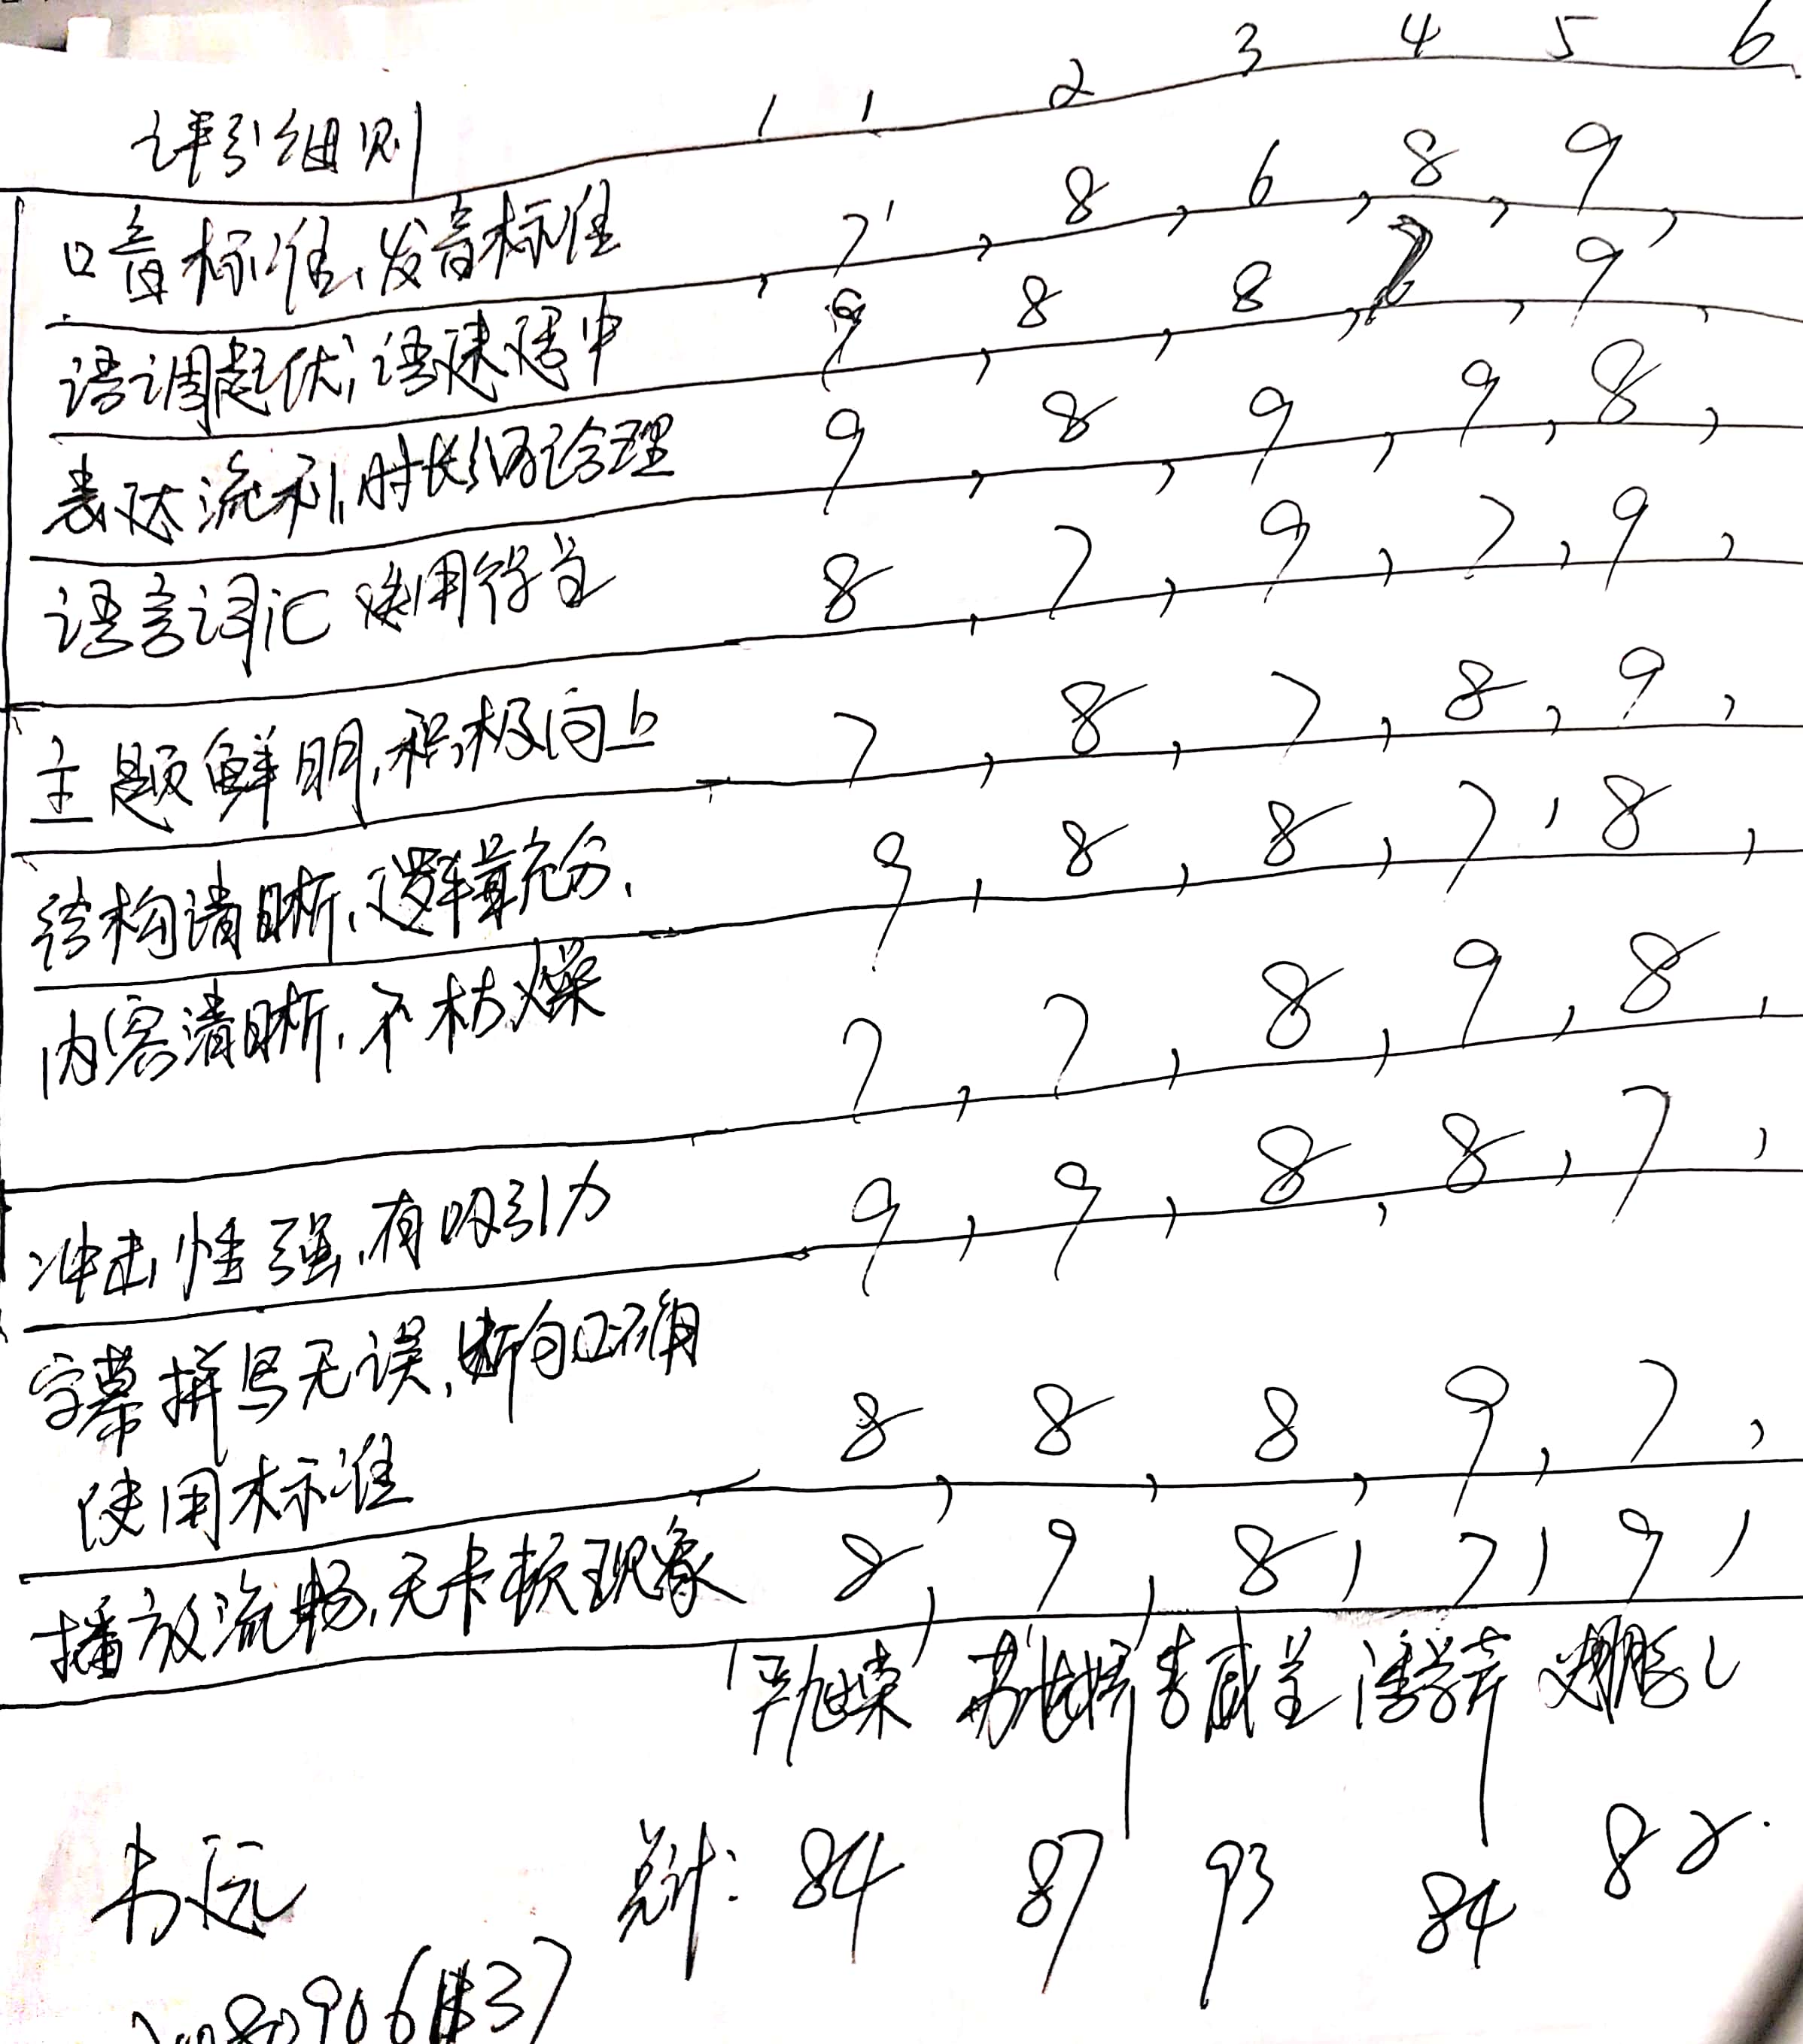 1 2 3 4 5 6
评引细则
口音标准、发音标准 7 8 6 8 9
语调起伏,语速适中 9 8 8 9
表达流利,时长 合理 9 8 9 9 8
语言词汇使用 8 7 9 7 9
主题鲜明,积极向上 7 8 7 8 9
结构清晰、 充分. 9 8 8 7 8
内容清晰,不枯燥 7 7 8 9 8
冲击性强,有吸引力 9 9 8 8 7
字幕拼写无误,断句正确
使用标准 8 8 8 9 7
播放流畅,无卡顿现象 8 9 8 7 9
严旭荣
总计: 84 87 93 84 82.